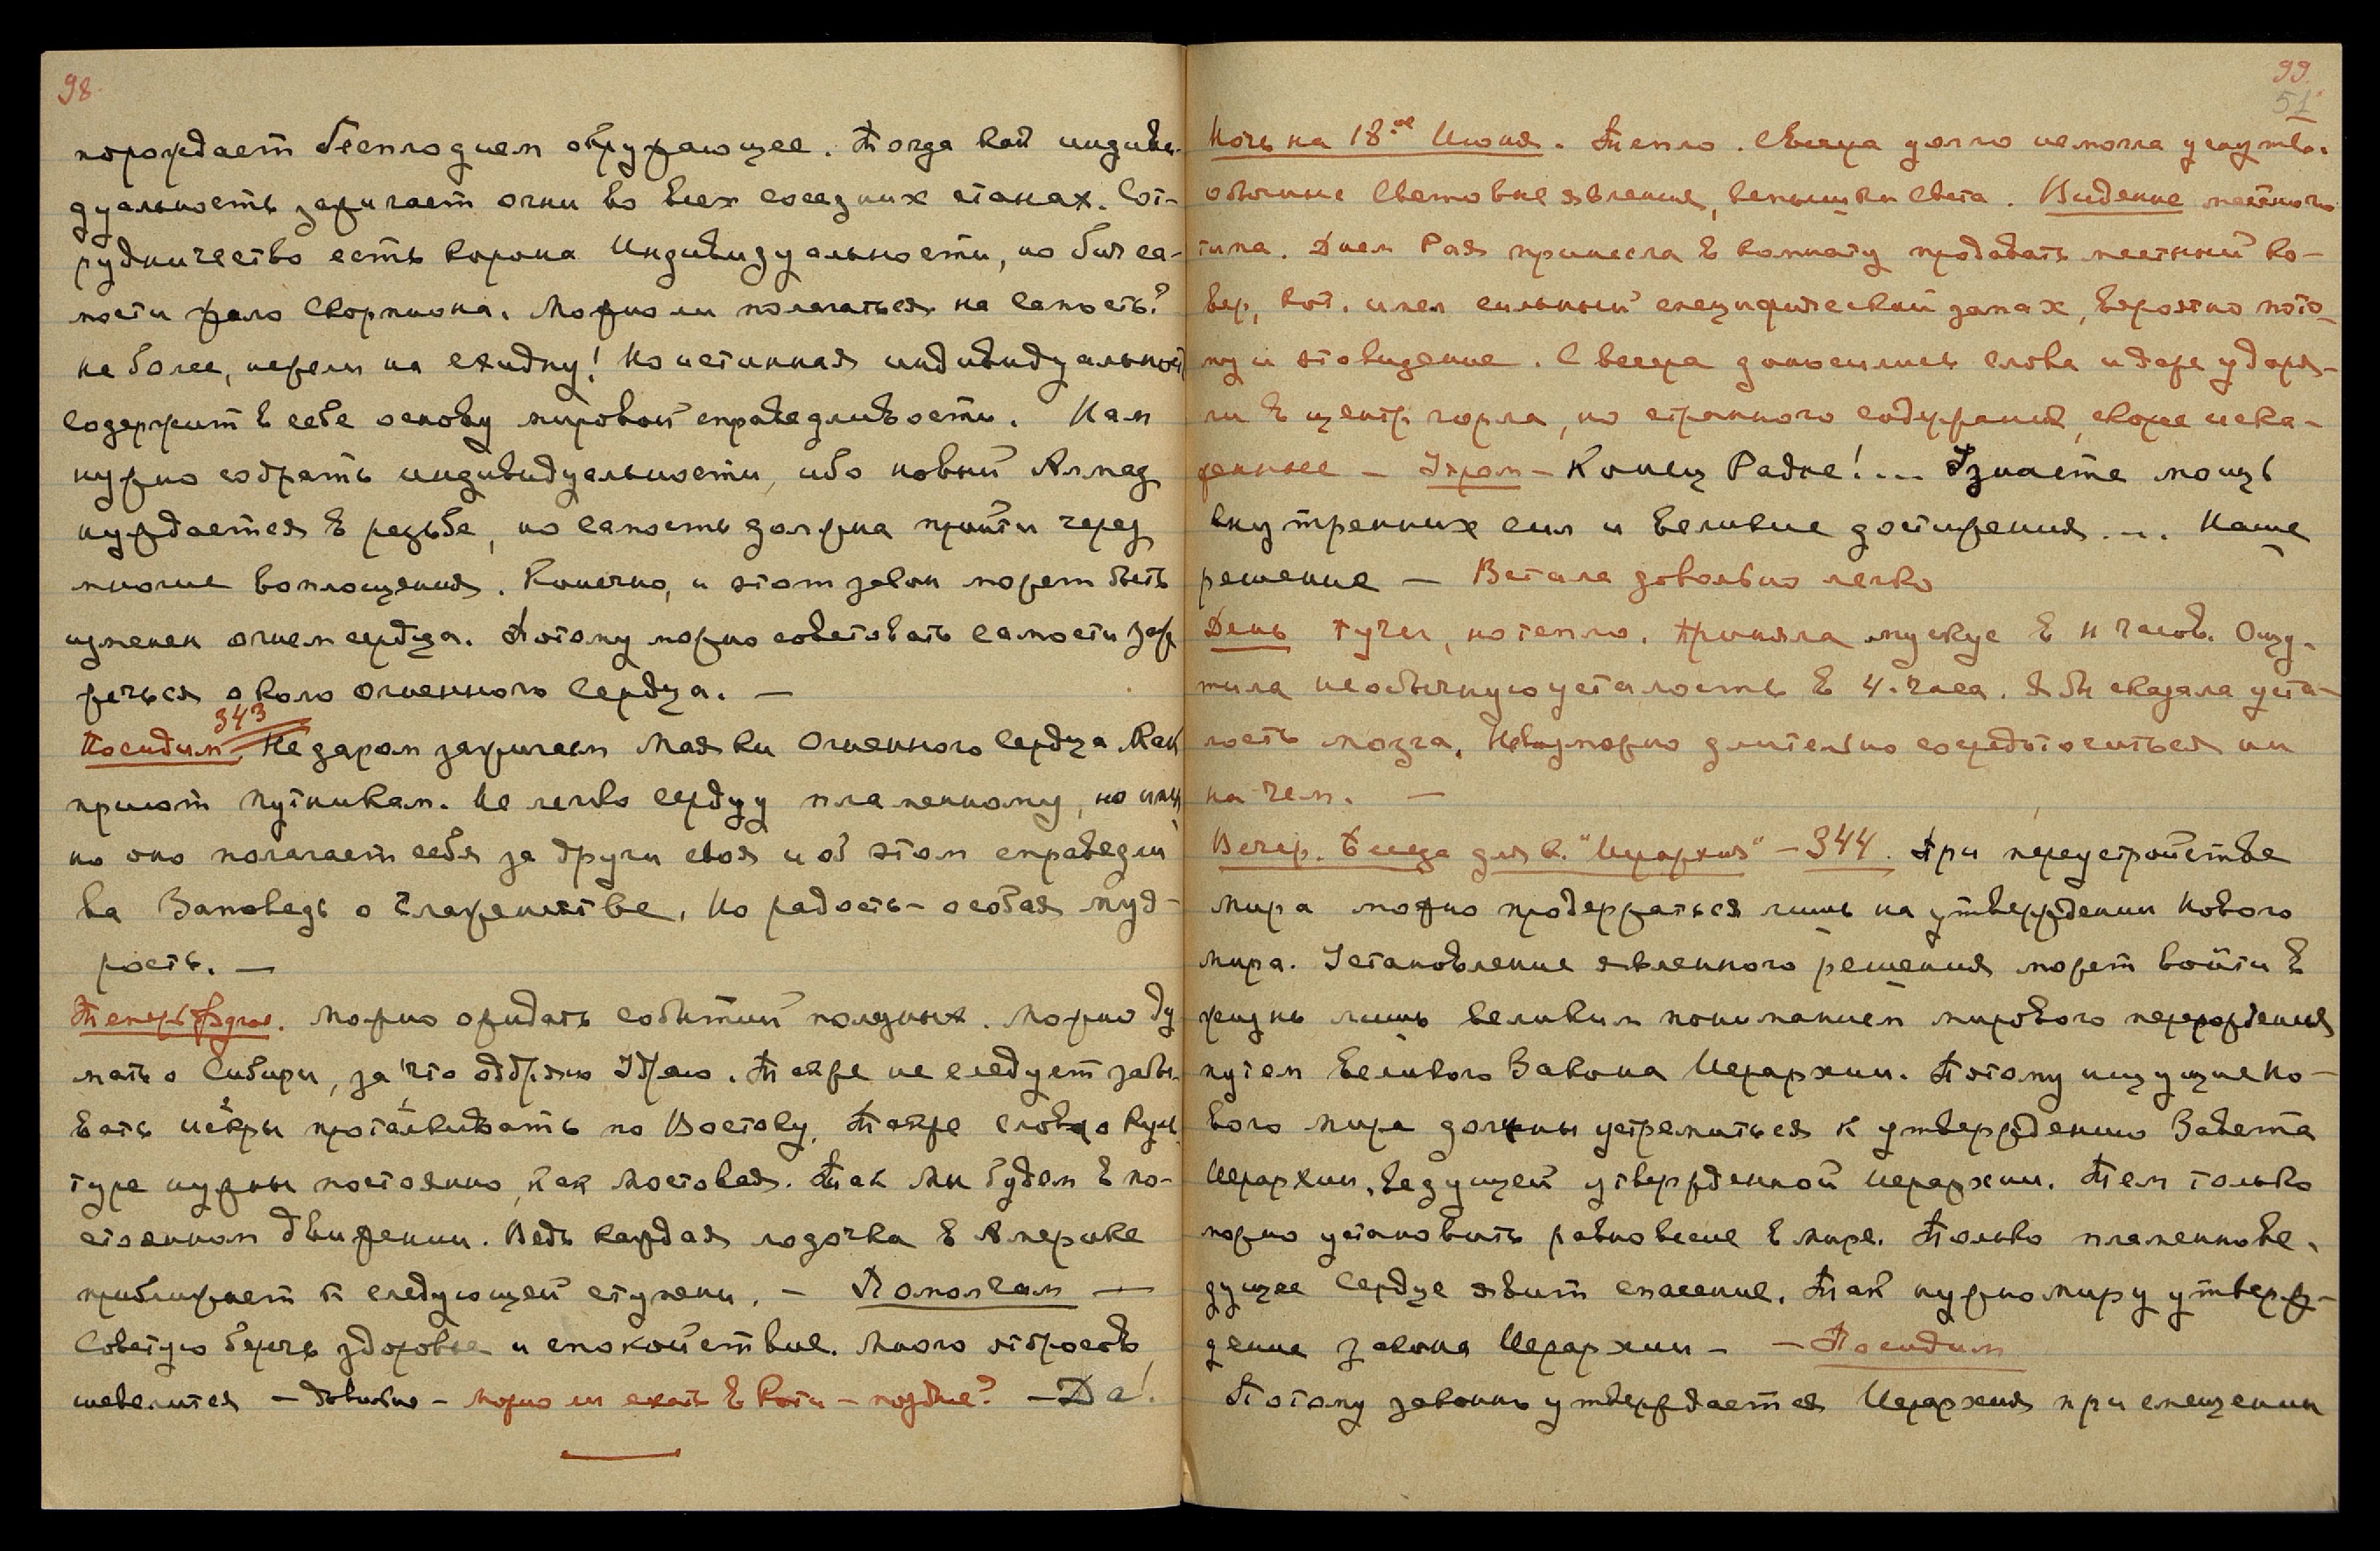 98.
порождает бесплодием окружающее. Тогда как индиви-
дуальность зажигает огни во всех соседних станах. Сот-
рудничество есть корона Индивидуальности, но бич са-
мости жало скорпиона. Можно ли полагаться на самость?
не более, нежели на ехидну! Но истинная индивидуальность
содержит в себе основу мировой справедливости. Нам
нужно собрать индивидуальности, ибо новый Алмаз
нуждается в резьбе, но самость должна пройти через
многие воплощения. Конечно, и этот закон может быть
изменен огнем сердца. Потому можно советовать самости заж
речься около огненного Сердца. —
343
Посидим. Недаром зажигаем маяки Огненного Сердца как
приют путникам. Не легко сердцу пламенному, но имен
но оно полагает себя за други своя и об этом справедли
ва Заповедь о блаженстве. Но радость – особая муд-
рость. —
Теперь другое. Можно ожидать событий полезных. Можно ду
мать о Сибири, за что одобряю Удраю. Также не следует забы-
вать искры проталкивать по Востоку. Также слово о куль
туре нужны постоянно, как мостовая. Так мы будем в по-
стоянном движении. Ведь каждая лодочка в Америке
приближает к следующей ступени. — Помолчим —
Советую беречь здоровье и спокойствие. Много отбросов
шевелится – Довольно – можно ли ехать в Коти – позднее? – Да!
99.
51
Ночь на 18-ое Июня. Тепло. Свеча долго не могла уснуть.
обычные световые явления, вспышки света. Видение местного
типа. Днем Рая принесла в комнату продавать местный ко-
вер, кот. имел сильный специфический запах, вероятно пото-
му и это видение. С вечера доносились слова и даже ударя-
ли в центр горла, но странного содержания, скорее иска-
женные – Утром – Конец Радне!... Узнаете мощь
внутренних сил и великие достижения... Наше
решение – Встала довольно легко
День тучи, но тепло. Приняла мускус в 11 часов. Ощу-
тила необычную усталость в 4. часа. Я бы сказала уста-
лость мозга. Невозможно длительно сосредоточиться ни
на чем. —
Вечер. Беседа для к. "Иерархия" – 344. При переустройстве
мира можно продержаться лишь на утверждении нового
мира. Установление явленного решения может войти в
жизнь лишь великим пониманием мирового перерождения
путем великого Закона Иерархии. Потому ищущие но-
вого мира должны устремиться к утверждению Завета
Иерархии, ведущей утвержденной иерархии. Тем только
можно установить равновесие в мире. Только пламенно ве-
дущее Сердце явит спасение. Так нужно миру утверж-
дение закона Иерархии – – Посидим
Потому законно утверждается Иерархия при смещении